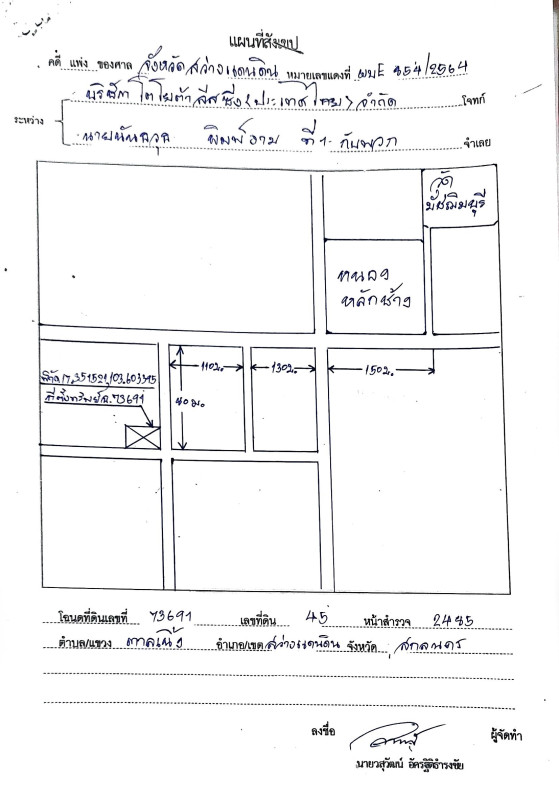 แผนที่สังเขป
คดี แพ่ง ของศาล จังหวัดสว่างแดนดิน หมายเลขแดงที่ ผบE 854/2564
บริษัท โตโยต้า ลีสซิ่ง (ประเทศไทย) จำกัด โจทก์
ระหว่าง
นาย พิมพ์งาม ที่ 1 กับพวก จำเลย
วัด
มัชฌิมบุรี
หนอง
หลักช้าง
110ม. 130ม. 150ม.
พิกัด 17.351521,103.603515
ที่ตั้งทรัพย์ฉ.73691
40ม.
โฉนดที่ดินเลขที่ 73691 เลขที่ดิน 45 หน้าสำรวจ 2485
ตำบล/แขวง ตาลเนิ้ง อำเภอ/เขต สว่างแดนดิน จังหวัด สกลนคร
ลงชื่อ ผู้จัดทำ
นายวสุวัฒน์ อัครฐิติธำรงชัย